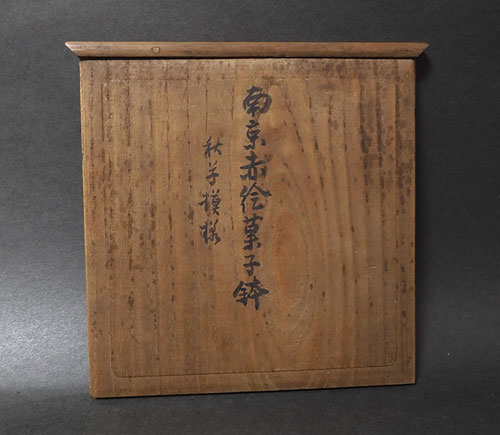 南京赤絵菓子鉢
秋草模様